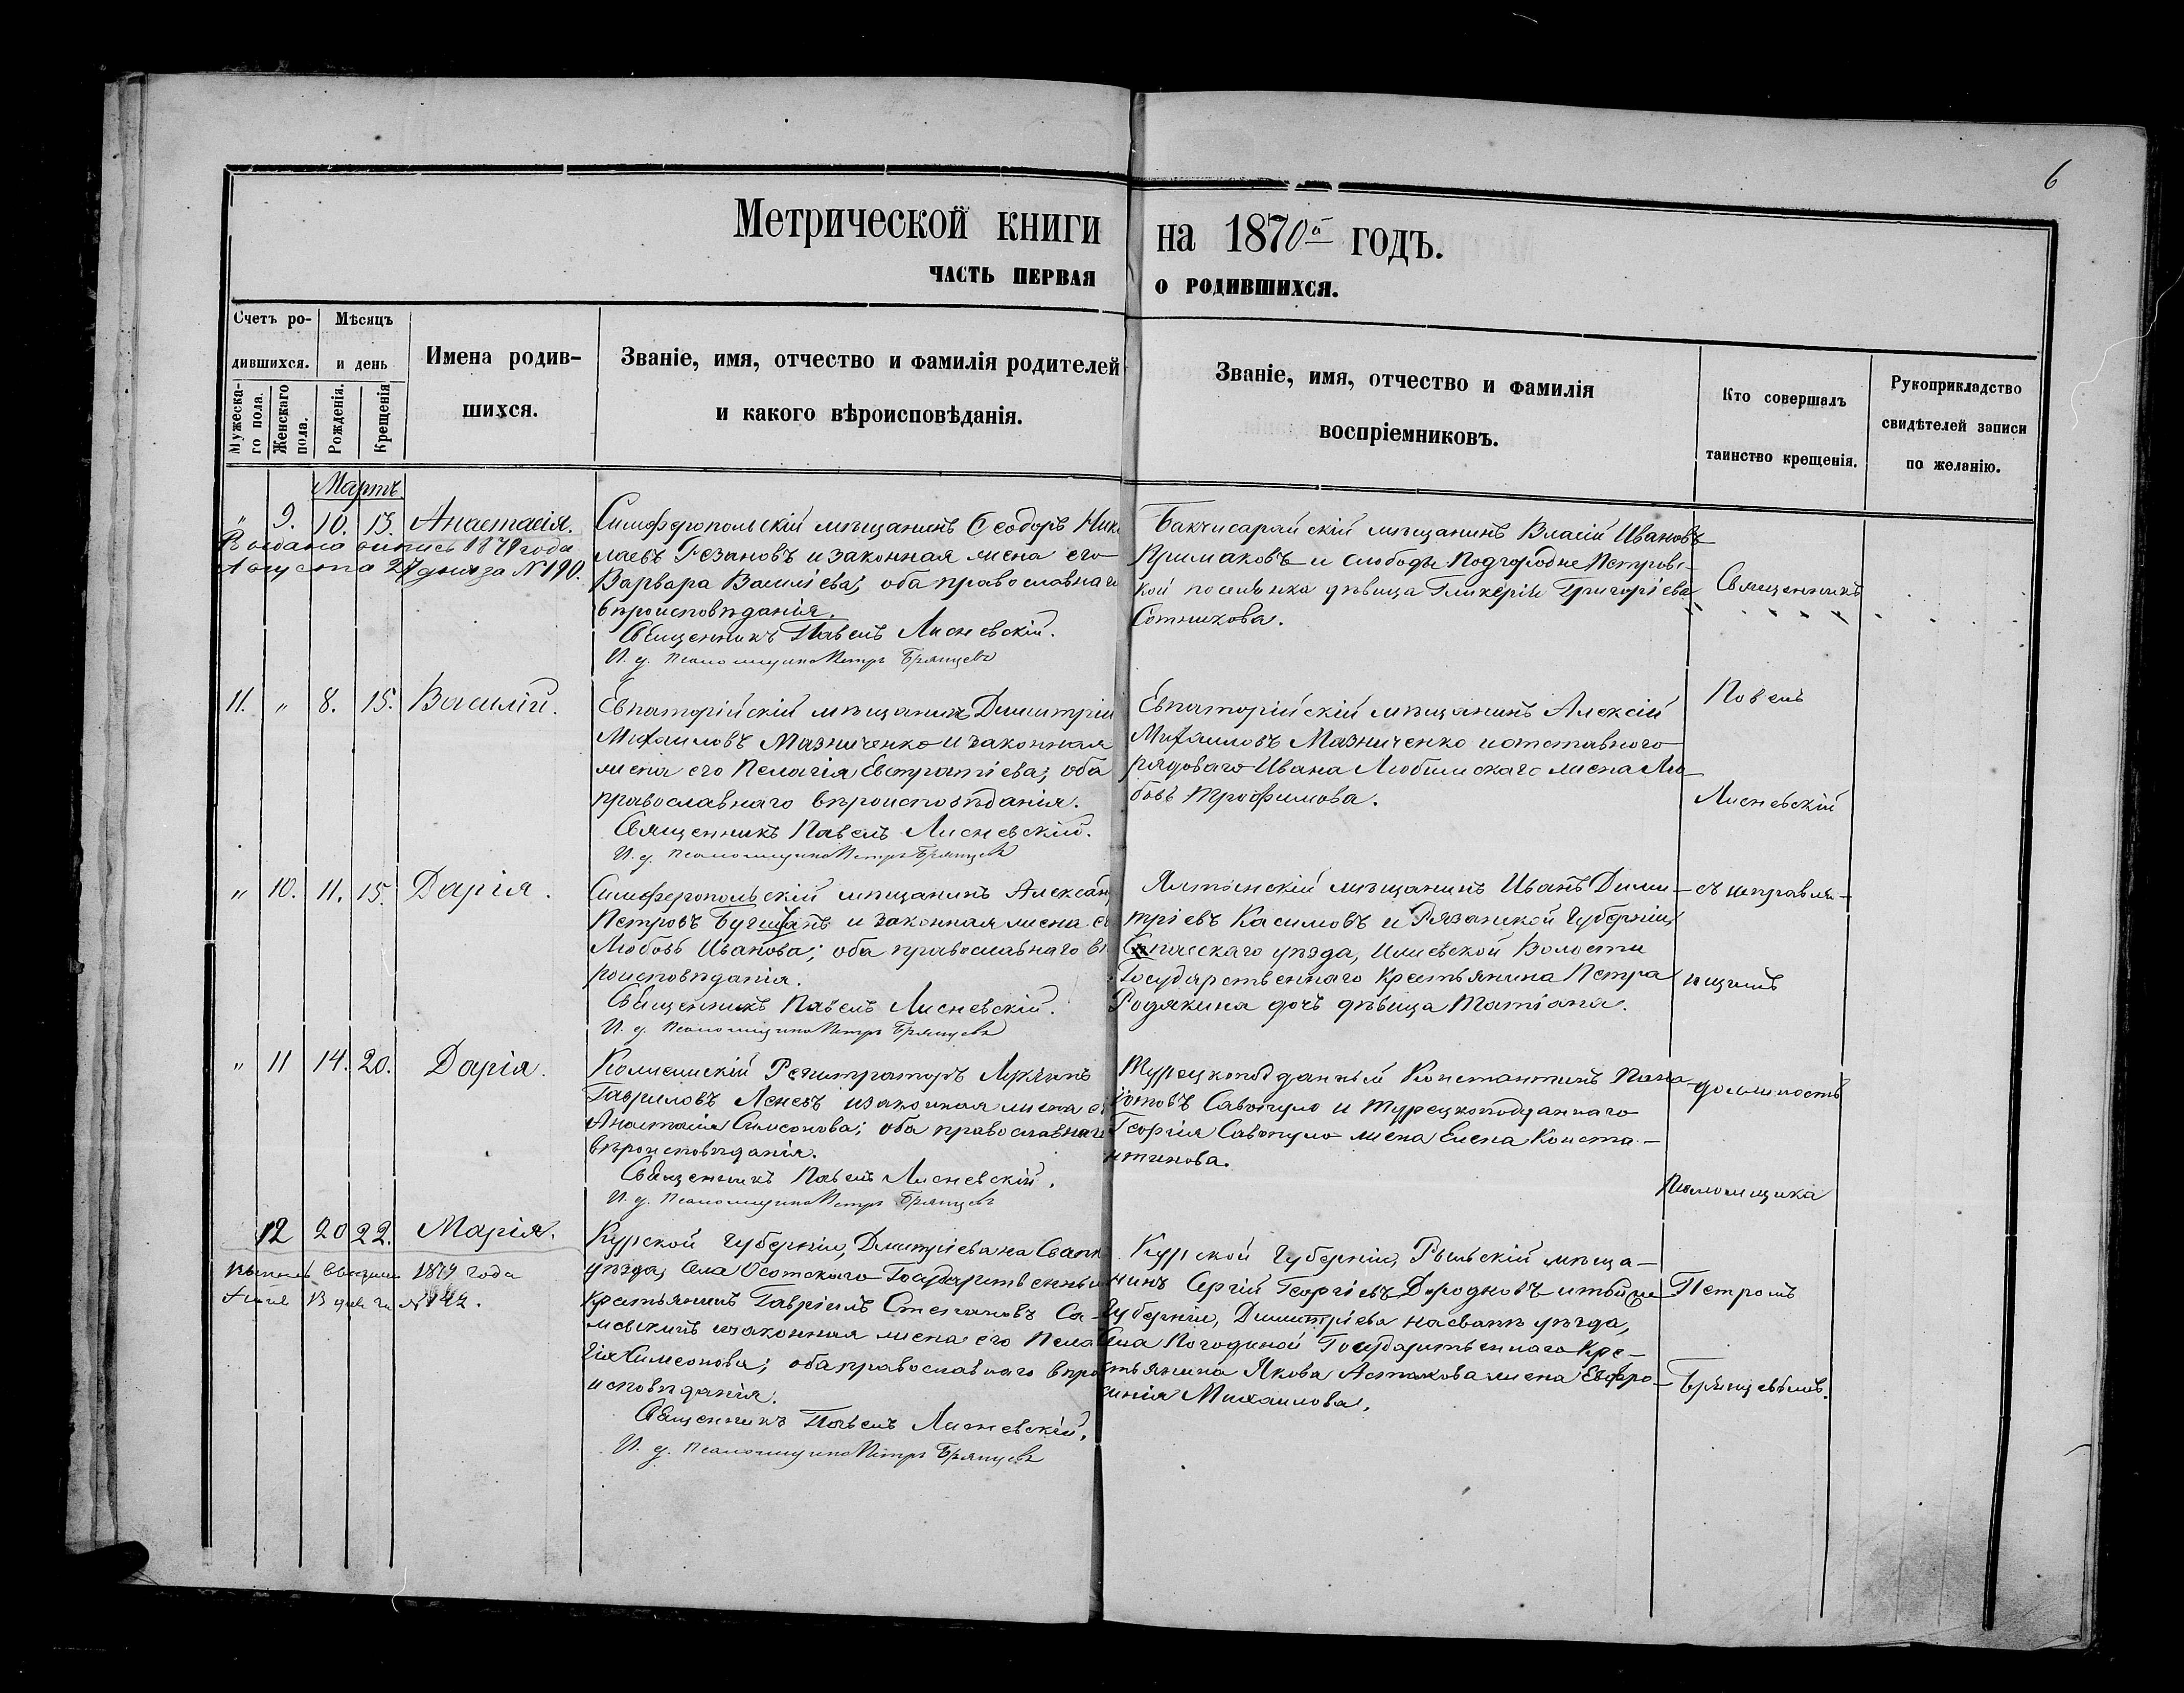 6
Метрической книги на 1870й годъ.
ЧАСТЬ ПЕРВАЯ О РОДИВШИХСЯ.
Счетъ ро-
дившихся.
Мужеска-
го пола.
Женскаго
пола.
Мѣсяцъ
и день
Рожденія.
Крещенія
Имена родив-
шихся.
Званіе, имя, отчество и фамилія родителей
и какого вѣроисповѣданія.
Званіе, имя, отчество и фамилія
воспріемниковъ.
Кто совершалъ
таинство крещенія.
Рукоприкладство
свидѣтелей записи
по желанію.
Мартъ
" 9. 10. 13. Анастасія.
Выдана выпись 1879 года
Августа 27 дня за № 190.
Симферопольскій мѣщанинъ Ѳеодоръ Нико
лаевъ Резановъ и законная жена его
Варвара Васильева; оба православнаго
вѣроисповѣданія.
Священникъ Павелъ Лисневскій.
И. д. псаломщика Петръ Брянцевъ
Бакчисарайскій мѣщанинъ Власій Ивановъ
Примаковъ и слободы Подгородне Петровс-
кой поселянка дѣвица Гликерія Григоріева
Сотникова.
11. " 8. 15. Василій.
Евпаторійскій мѣщанинъ Димитрій
Михаиловъ Мазниченко и законная
жена его Пелагія Евстратіева; оба
православнаго вѣроисповѣданія.
Священникъ Павелъ Лисневскій.
И. д. псаломщика Петръ Брянцевъ
Евпаторійскій мѣщанинъ Алексій
Михаиловъ Мазниченко и отставного
рядоваго Ивана Любимскаго жена Лю-
бовь Трофимова.
" 10. 11. 15. Дарія.
Симферопольскій мѣщанинъ Александ
Петровъ и законная жена его
Любовь Иванова; оба православнаго вѣ
роисповѣданія.
Священникъ Павелъ Лисневскій.
И. д. псаломщика Петръ Брянцевъ
Ялтинскій мѣщанинъ Иванъ Дими-
тріевъ Касимовъ и Рязанской Губерніи
Спасскаго уѣзда, Волости
Государственнаго Крестьянина Петра
Родякина дочь дѣвица Татіана.
" 11 14. 20. Дарія.
Коллежскій Регистраторъ
Гавриловъ Леневъ и законная жена е
Анастасія Симеонова; оба православнаго
вѣроисповѣданія.
Священникъ Павелъ Лисневскій.
И. д. псаломщика Петръ Брянцевъ
Турецкоподданный Константинъ Пана-
іотовъ Савопуло и Турецкоподданнаго
Георгія Савопуло жена Елена Конста-
нтинова.
12 20 22. Марія.
выпись 1879 года
13 дня за № 142.
Курской Губерніи, Дмитріева на Свапѣ
уѣзда, Села Осотскаго Государственный
Крестьянинъ Гавріилъ Стефановъ Са-
и законная жена его Пела
гія Симеонова; оба православнаго вѣро
исповѣданія.
Священникъ Павелъ Лисневскій.
И. д. псаломщика Петръ Брянцевъ
Курской Губерніи, Рыльскій мѣща-
нинъ Сергій Георгіевъ Дородновъ и той же
Губерніи, Димитріева на Свапѣ уѣзда,
Села Погодиной Государственнаго Кре-
стьянина Якова Астахова жена Евфро-
синія Михаилова.
Священникъ
Павелъ
Лисневскій
съ исправля-
ющимъ
должность
Псаломщика
Петромъ
Брянцевымъ.